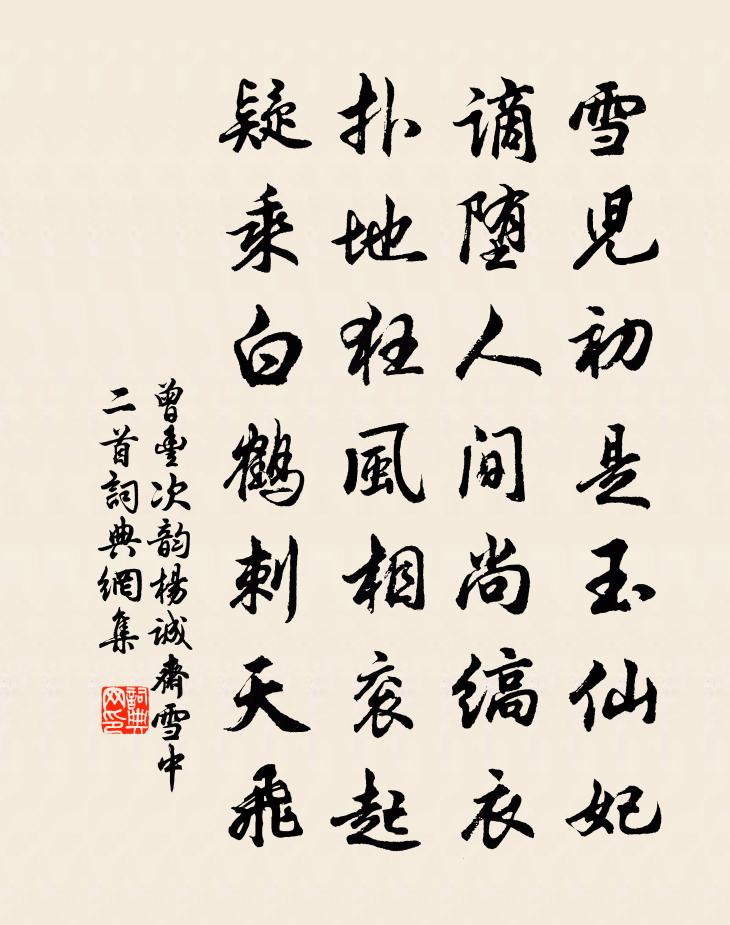 雪児初是玉仙妃
謫堕人间尚缟衣
扑地狂風相衮起
疑乘白鹤刺天飛
曾豊次韵楊诚齋雪中
二首詞典網集
詞典
网印